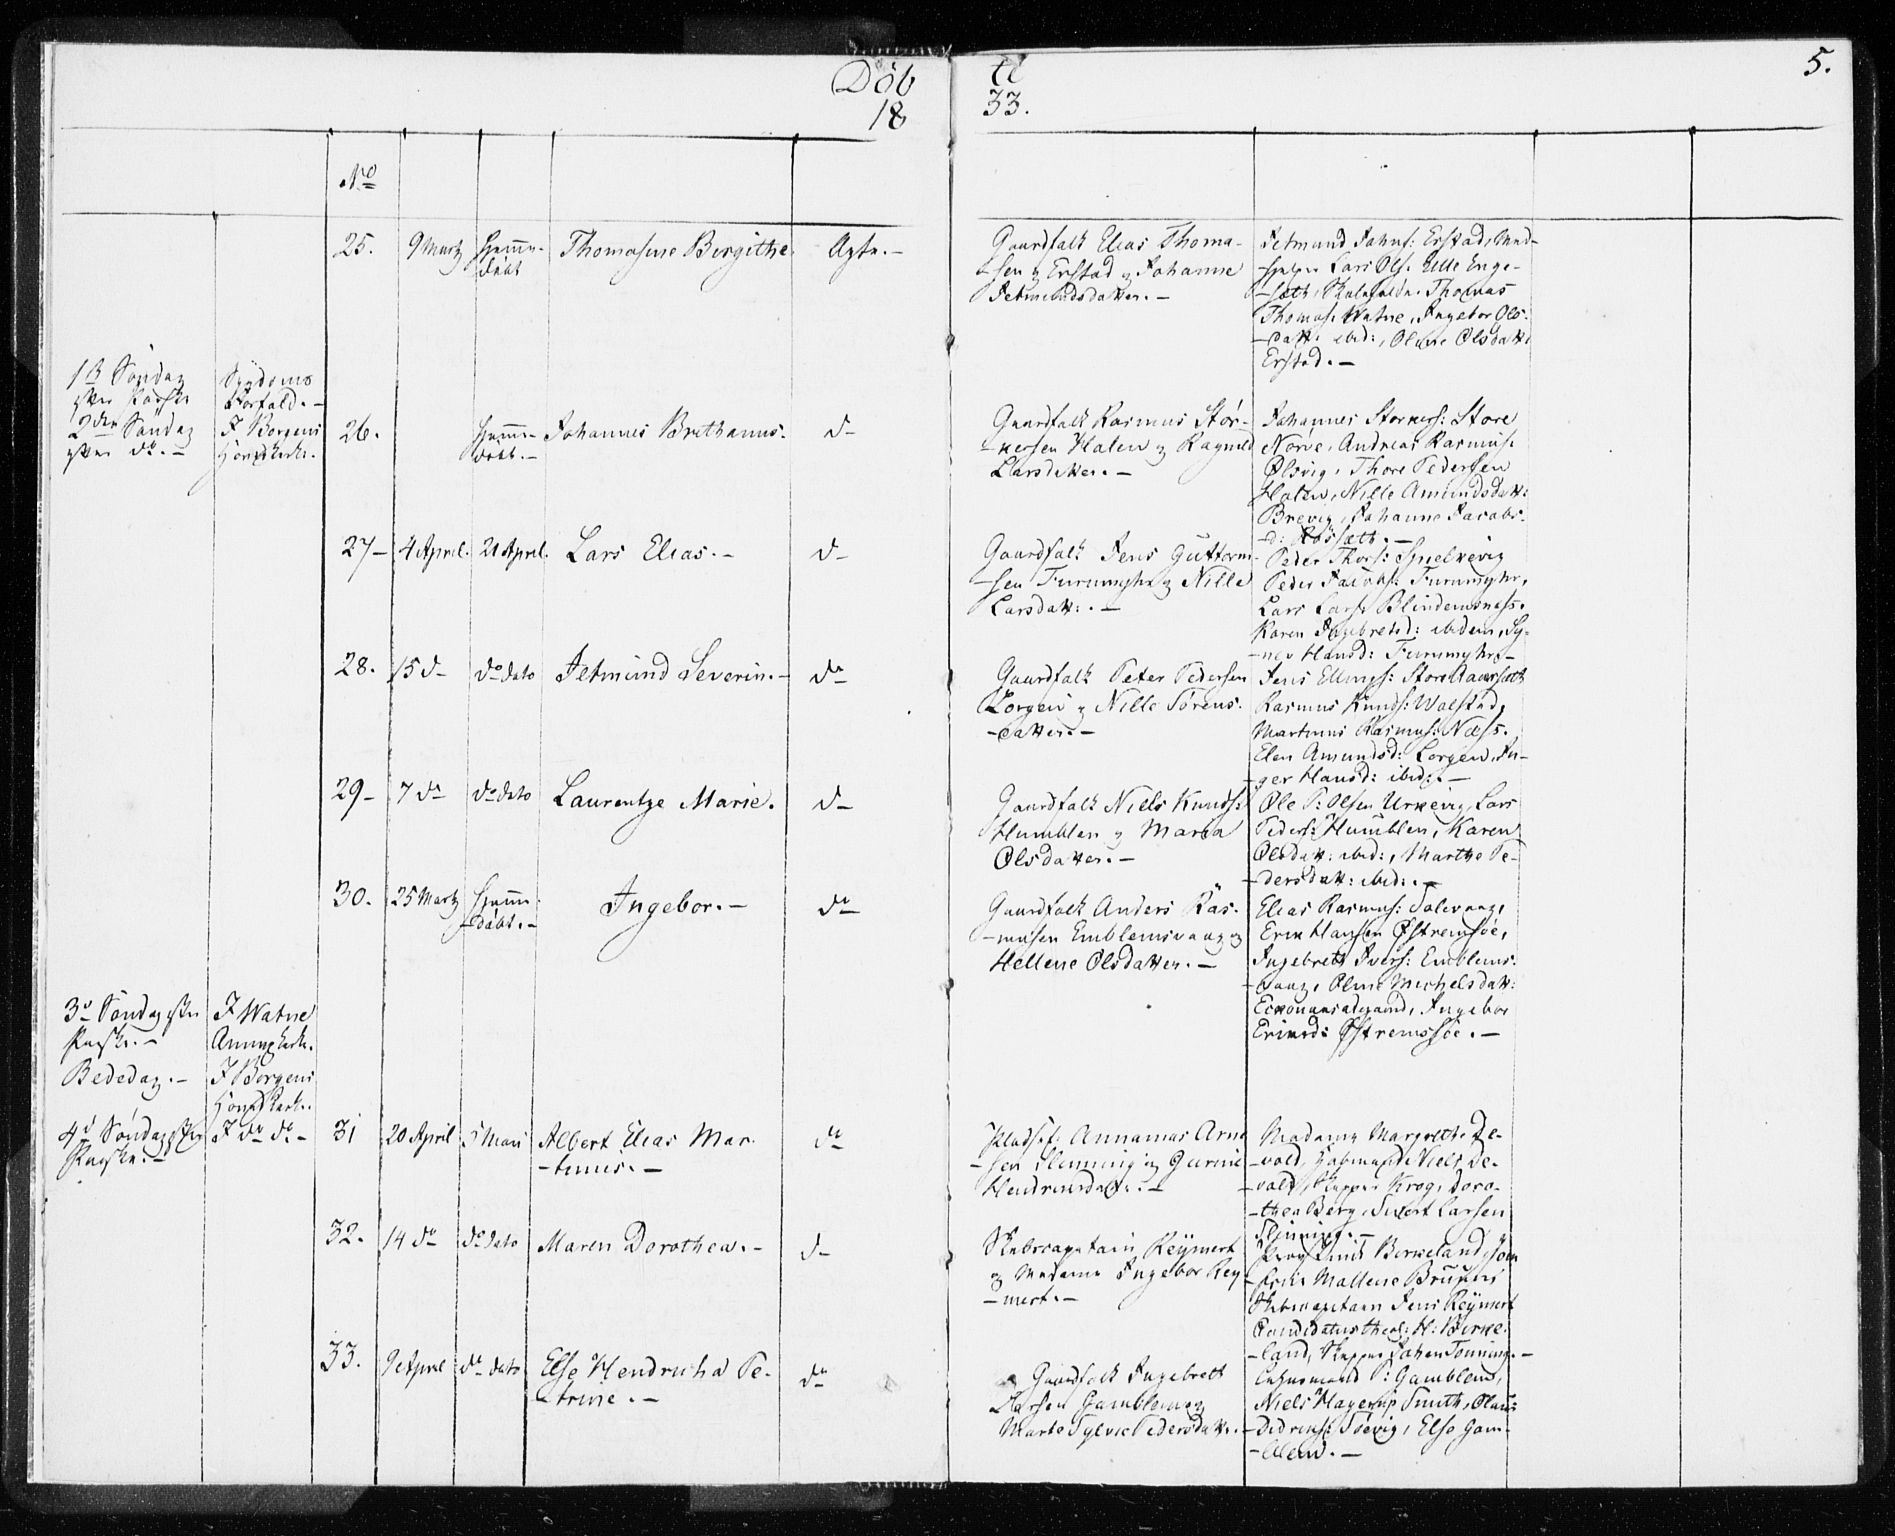 Döb
18
te
33.
5.
No
25.
9 Marts
Hjemme-
døbt
Thomasine Birgithe.
Ægte.-
Gaardfolk Elias Thoma-
-sen Erstad og Johanne
Jetmundsdatter.-
Jetmund Johns: Erstad, Med-
-hjelper Lars Ols: Ulle Enge-
-sæth, Thomas
Thomas: Watne, Ingebor Ols-
-datt: ibid:, Oline Olsdatt:
Erstad.-
1ste Søndag
efter Paaske
Sygdoms
Forfald.-
2den Søndag
efter do.-
I Borgens
Hovedkirke.
26.
Hjemme-
døbt.-
Johannes Brithanus.
d-
Gaardfolk Rasmus Stor-
-kersen Hatlen og Ragnild
Larsdatter.-
Johannes Storkers: Store
Nørve, Andreas Rasmus:
Ølsvig, Thore Pedersen
Hatlen, Nille Amundsdatt:
Brevig, Johanne Jacobs-
-d:
27-
4 April.
21 April.
Lars Elias.-
d-
Gaardfolk Jens Guttorm-
-sen Furumyhr og Nille
Larsdatt:.-
Peder Thors: Spielkevig
Peder Jacobs: Furumyhr,
Lars Lars: Blindemsnæss.
Karen Ingebretsd: ibidem, Sy-
-nev Hansd: Furumyhr.-
28.
15 d-
do dato
Jetmund Severin.-
do
Gaardfolk Peter Pedersen
Lorgen og Nille Sørens-
-datter.-
Jens Ellings: Store Aarsæth
Rasmus Knuds: Walstad,
Martinus Rasmus: Næss.
Elen Amundsd: Lorgen, In-
-ger Hansd: ibid:.-
29-
7 do
do dato
Laurentze Marie.
d-
Gaardfolk Niels Knuds:
Humblen og Maria
Olsdatter.-
Ole P: Olsen Urkevig, Lars
Peders: Humblen, Karen
Olsdatt: ibid:, Marthe Pe-
-dersdatt: ibid:.-
30.
25 Marts
Hjemme-
-døbt.-
Ingebor.-
do
Gaardfolk Anders Ras-
-musen Emblemsvaag og
Hellene Olsdatter.-
Elias Rasmus: Solevaag,
Erik Hansen Østremsøe,
Ingebreth Ivers: Emblems-
-vaag, Oline Michelsdatt:
Ingebor
Eriksd: Østremssøe.-
3de Søndag efter
Paaske.-
I Watne
Annexkirke.
Bededag.-
I Borgens
Hovedkirke.
4de Søndag efter
Paaske.-
I do do-
31
20 April
5 Mai
Albert Elias Mar-
-tinus.-
do
Pladsf: Annanias Arne
-sen Slinning og Gurine
Hendriksdatt:.-
Madame Margrethe De-
-vold, Niels De-
-vold, Skipper Krog, Doro-
-thea Berg, Sivert Larsen
Slinning.-
32.
14 do
do dato
Maren Dorothea.-
d-
Skibscapitain Reymert
og Madame Ingebor Rey-
-mert.-
Birkeland, Jom
-frue Mallene Bruun
Skibscapitain Jens Reymert
Candidatus theol: H: Birke-
-land, Skipper Johan Tønning.-
33.
9 April
do dato
Else Hendricha Pe-
-trine.-
do
Gaardfolk Ingebrett
Larsen Gamblem og
Marte Sylvie Pedersdatt:.-
P: Gamblem,
Niels Hagerup Smith, Olaus
Didriks: Søevig, Else Gam-
-blem.-